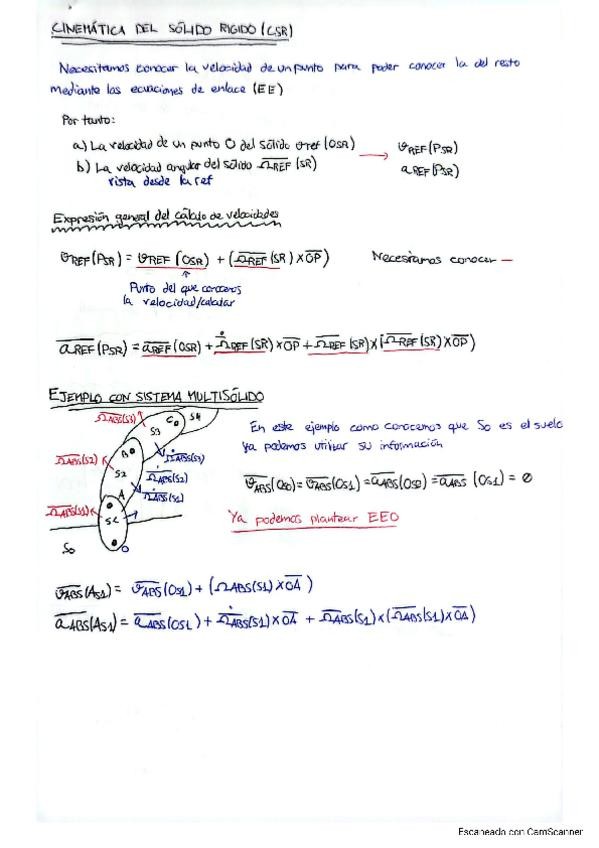 CINEMÁTICA DEL SÓLIDO RIGIDO (CSR)
Necesitamos conocer la velocidad de un punto para poder conocer la del resto
mediante las ecuaciones de enlace (EE)
Por tanto:
a) La velocidad de un punto O del sólido vref (OSR)
b) La velocidad angular del sólido ΩREF (SR)
vista desde la ref
→ vREF (PSR)
aREF (PSR)
Expresión general del cálculo de velocidades
vREF (PSR) = vREF (OSR) + (ΩREF (SR) x OP) Necesitamos conocer —
Punto del que conocemos
la velocidad/calcular
aREF (PSR) = aREF (OSR) + Ω̇REF (SR) x OP + ΩREF (SR) x (ΩREF (SR) x OP)
EJEMPLO CON SISTEMA MULTISÓLIDO
ΩABS(S3) C S4
S3
B
ΩABS(S2) Ω̇ABS(S3)
S2
Ω̇ABS(S2)
A Ω̇ABS(S1)
ΩABS(S1)
S1
So O
En este ejemplo como conocemos que So es el suelo
ya podemos utilizar su información
vABS(OS0) = vABS(OS1) = aABS(OS0) = aABS (OS1) = 0
Ya podemos plantear EEO
vABS(AS1) = vABS(OS1) + (ΩABS(S1) x OA)
aABS(AS1) = aABS(OS1) + Ω̇ABS(S1) x OA + ΩABS(S1) x (ΩABS(S1) x OA)
Escaneado con CamScanner